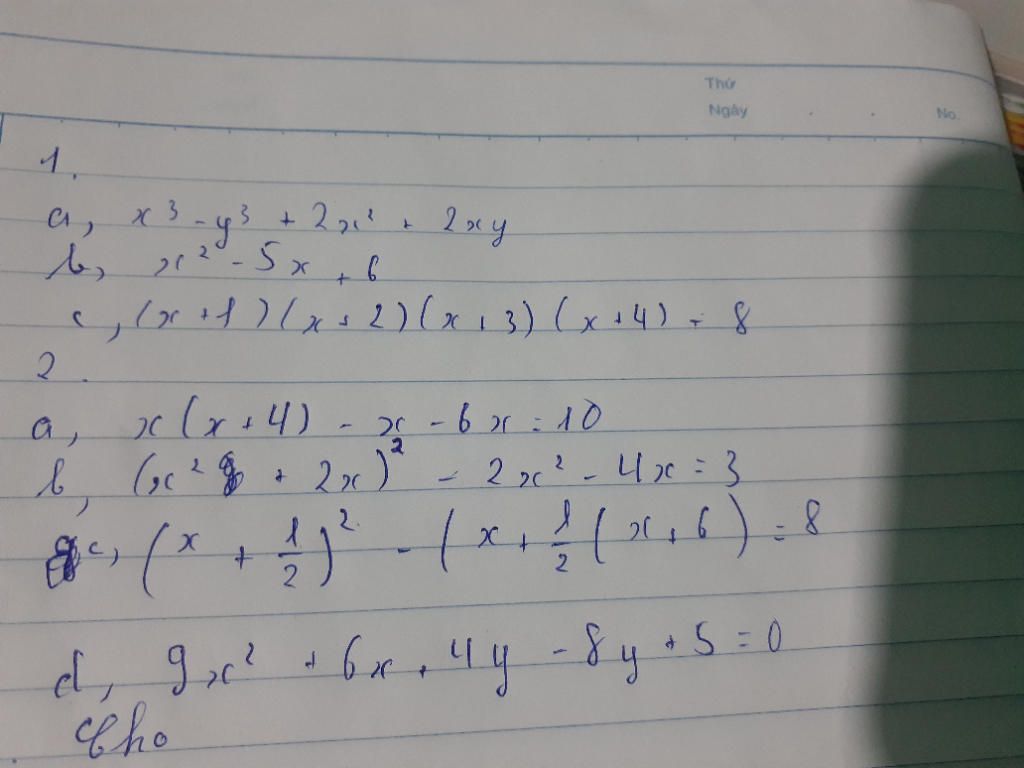 Thứ
Ngày . . No.
1.
a, x³ - y³ + 2x² + 2xy
b, x² - 5x + 6
c, (x+1)(x+2)(x+3)(x+4) - 8
2.
a, x(x+4) - x - 6x = 10
b, (x² + 2x)² - 2x² - 4x = 3
c, (x + 1/2)² - (x + 1/2 (x+6) = 8
d, 9x² + 6x + 4y - 8y + 5 = 0
Cho